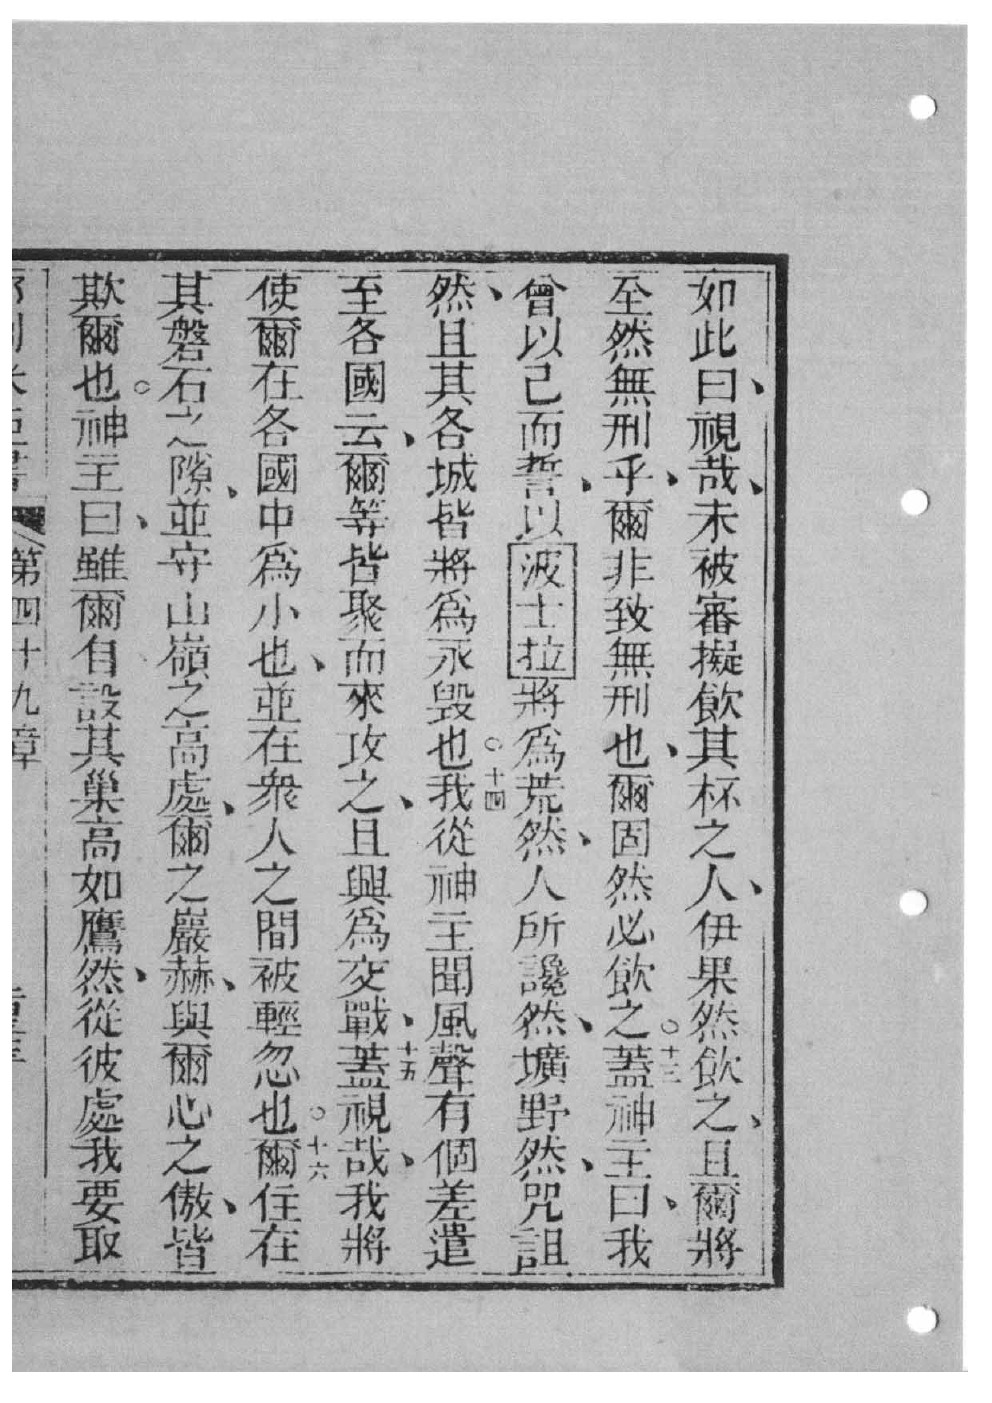 如此曰、視哉、未被審擬飲其杯之人、伊果然飲之、且爾將
至然無刑乎、爾非致無刑也、爾固然必飲之。十三蓋神主曰、我
曾以己而誓、以波士拉將爲荒然、人所讒然、壙野然、咒詛
然、且其各城皆將爲永毀也。十四我從神主聞風聲有個差遣
至各國云、爾等皆聚而來攻之、且興爲交戰、十五蓋視哉、我將
使爾在各國中爲小也、並在衆人之間被輕忽也。十六爾住在
其磐石之隙、並守山嶺之高處、爾之嚴赫、與爾心之傲、皆
欺爾也。神主曰、雖爾自設其巢高如鷹然、從彼處我要取
第四十九章